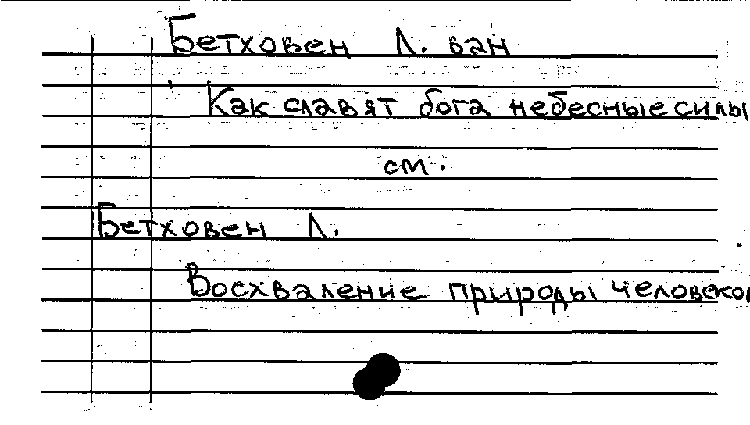 Бетховен Л. ван
Как славят бога небесные силы
см.
Бетховен Л.
Восхваление природы человеком